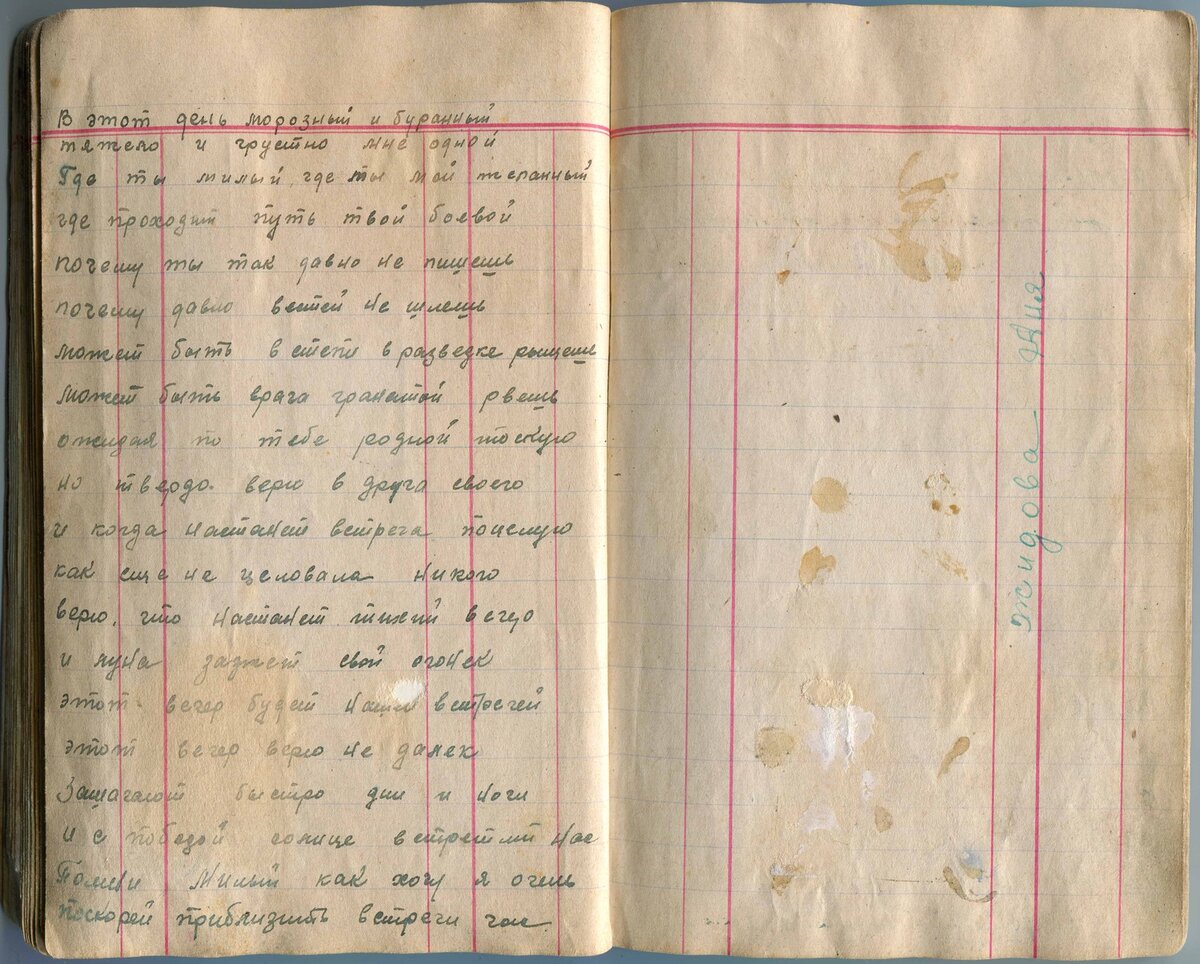 В этот день морозный и буранный
тяжело и грустно мне одной
Где ты милый, где ты мой желанный
где проходит путь твой боевой
почему ты так давно не пишешь
почему давно вестей не шлешь
может быть в степи в разведке рыщешь
может быть врага гранатой рвешь
ожидая по тебе родной тоскую
но твердо верю в друга своего
и когда настанет встреча поцелую
как еще не целовала никого
верю, что настанет тихий вечер
и луна зажжет свой огонек
этот вечер будет нашей встречей
этот вечер верю не далек
Зашагают быстро дни и ночи
и с победой солнце встретит нас
Помни Милый как хочу я очень
поскорей приблизить встречи час
Жидова